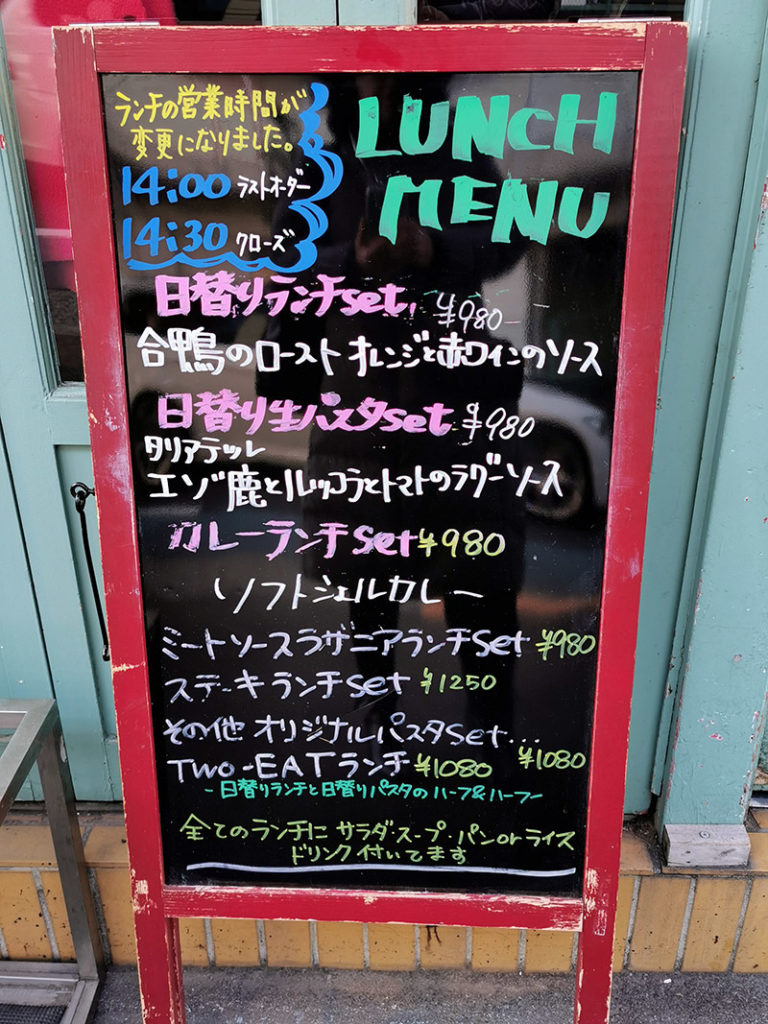 ランチの営業時間が
変更になりました。
14:00 ラストオーダー
14:30 クローズ
LUNCH
MENU
日替りランチset. ¥980
合鴨のロースト オレンジと赤ワインのソース
日替り生パスタset ¥980
タリアテッレ
エゾ鹿とルッコラとトマトのラグーソース
カレーランチset ¥980
ソフトシェルカレー
ミートソースラザニアランチset ¥980
ステーキランチset ¥1250
その他 オリジナルパスタset... ¥1080
TWO-EATランチ ¥1080
-日替りランチと日替りパスタのハーフ&ハーフ-
全てのランチに サラダ・スープ・パンorライス
ドリンク付いてます